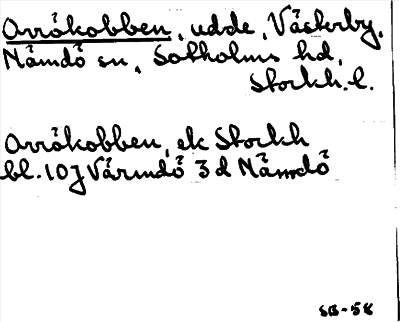 Orrökobben, udde, Västerby,
Nämdö sn, Sotholms hd,
Stockh. l.
Orrökobben, ek Stockh
bl. 10J Värmdö 3 d Nämdö
SB-58